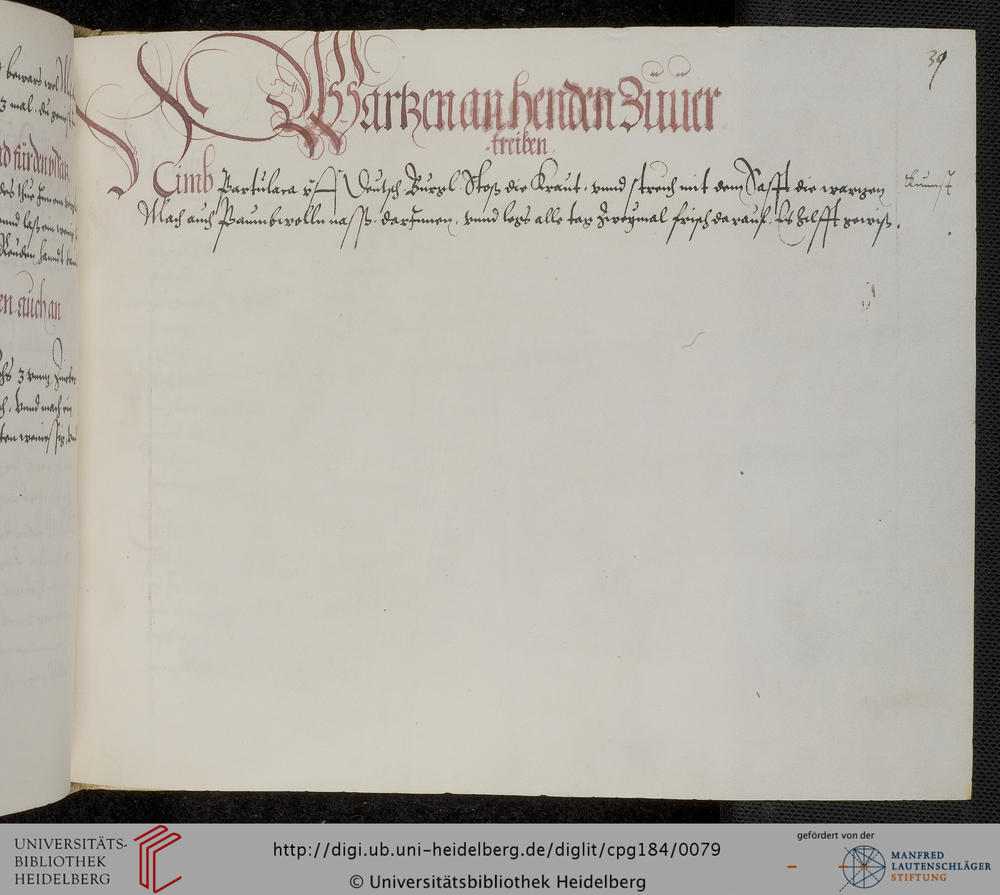 bewars wol
3 mal. du
39
Wartzen an henden Zuuer
treiben
Nimb Partulaca Deutsch Burzl. Stoss die Kraut. vnnd streich mit dem Safft die warzen
Kunst
Mach auch Paumbwolln nass darInnen. vnnd legs alle tag Zweymal frisch darauf. Es hilfft gewiss.
en auch an
vnnd mach ein
UNIVERSITÄTS-
BIBLIOTHEK
HEIDELBERG
http://digi.ub.uni-heidelberg.de/diglit/cpg184/0079
© Universitätsbibliothek Heidelberg
gefördert von der
MANFRED
LAUTENSCHLÄGER
STIFTUNG